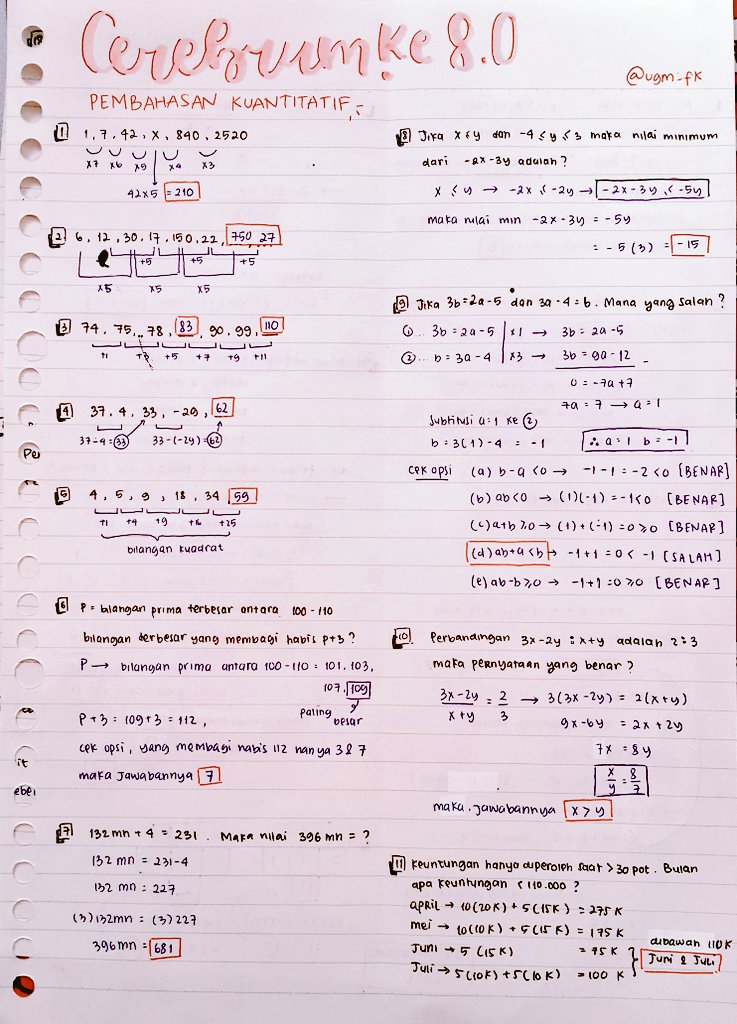 Cerebrum Ke 8.0
@ugm_fk
PEMBAHASAN KUANTITATIF
1 1, 7, 42, x, 840, 2520
x7 x6 x5 x4 x3
42x5 = 210
2 6, 12, 30, 17, 150, 22, 750 27
+5 +5 +5
x5 x5 x5
3 74, 75, 78, 83, 90, 99, 110
+1 +3 +5 +7 +9 +11
4 37, 4, 33, -29, 62
37-4=33 33-(-29)=62
5 4, 5, 9, 18, 34 59
+1 +4 +9 +16 +25
bilangan kuadrat
6 P = bilangan prima terbesar antara 100-110
bilangan terbesar yang membagi habis p+3?
P → bilangan prima antara 100-110 = 101, 103,
107, 109
paling besar
P+3 = 109+3 = 112,
cek opsi, yang membagi habis 112 hanya 3 & 7
maka jawabannya 7
7 132mn + 4 = 231. Maka nilai 396mn = ?
132 mn = 231-4
132 mn = 227
(3)132mn = (3)227
396mn = 681
8 Jika x ≤ y dan -4 ≤ y ≤ 3 maka nilai minimum
dari -2x-3y adalah?
x ≤ y → -2x ≤ -2y → -2x-3y ≤ -5y
maka nilai min -2x-3y = -5y
= -5(3) = -15
9 Jika 3b=2a-5 dan 3a-4=b. Mana yang salah?
①... 3b=2a-5 | x1 → 3b=2a-5
②... b=3a-4 | x3 → 3b=9a-12 -
0=-7a+7
7a=7 → a=1
Subtitusi a=1 ke ②
b=3(1)-4 = -1 ∴ a=1 b=-1
cek opsi (a) b-a<0 → -1-1=-2<0 [BENAR]
(b) ab<0 → (1)(-1)=-1<0 [BENAR]
(c) a+b≥0 → (1)+(-1)=0≥0 [BENAR]
(d) ab+a<b → -1+1=0<-1 [SALAH]
(e) ab-b≥0 → -1+1=0≥0 [BENAR]
10. Perbandingan 3x-2y : x+y adalah 2:3
maka pernyataan yang benar?
3x-2y/x+y = 2/3 → 3(3x-2y) = 2(x+y)
9x-6y = 2x+2y
7x = 8y
x/y = 8/7
maka, jawabannya x > y
11 Keuntungan hanya diperoleh saat > 30 pot. Bulan
apa keuntungan < 110.000?
april → 10(20K) + 5(15K) = 275K
mei → 10(10K) + 5(15K) = 175K
Juni → 5(15K) = 75K
Juli → 5(10K)+5(10K) = 100 K
dibawah 110K
Juni & Juli
it